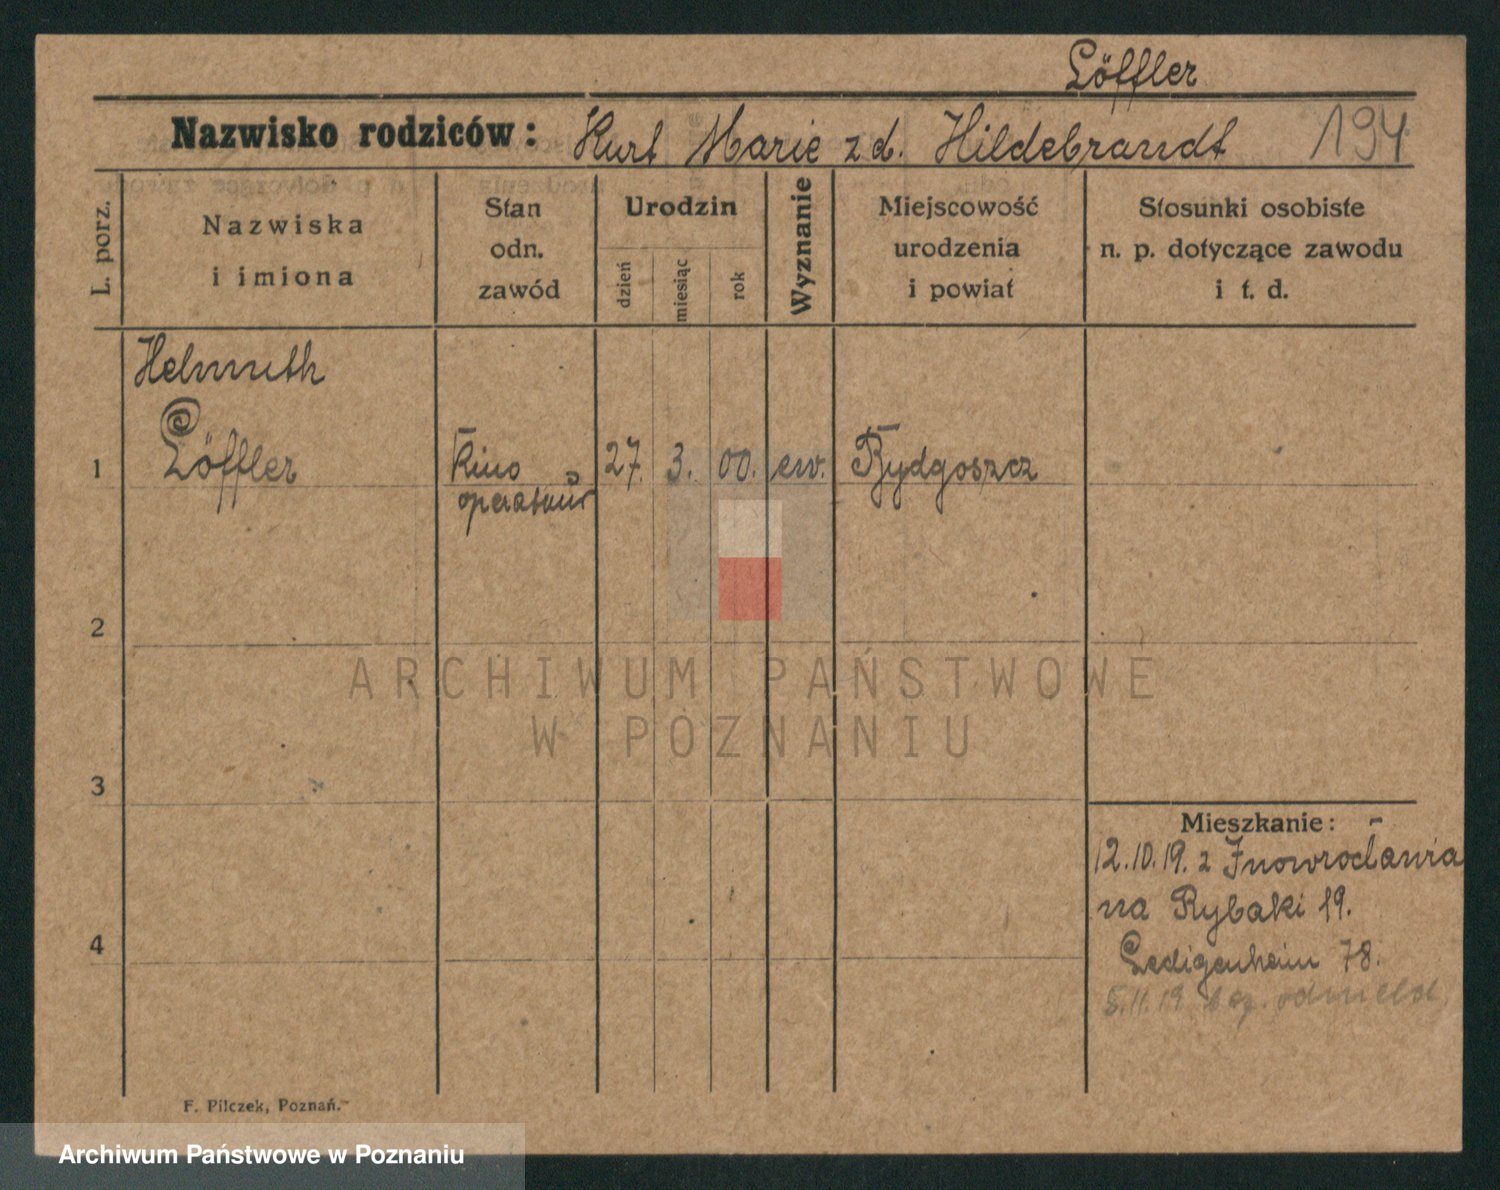 Löffler
Nazwisko rodziców: Kurt Marie z d. Hildebrandt 194
L. porz.
Nazwiska
i imiona
Stan
odn.
zawód
Urodzin
dzień
miesiąc
rok
Wyznanie
Miejscowość
urodzenia
i powiat
Stosunki osobiste
n. p. dotyczące zawodu
i t. d.
Helmuth
1 Löffler Kino 27. 3. 00. ew. Bydgoszcz
operateur
2
ARCHIWUM PAŃSTWOWE
W POZNANIU
3
Mieszkanie:
12.10.19. z Inowrocławia
na Rybaki 19.
4 Ledigenheim 78.
5.11.19 odmeld.
F. Pilczek, Poznań.
Archiwum Państwowe w Poznaniu